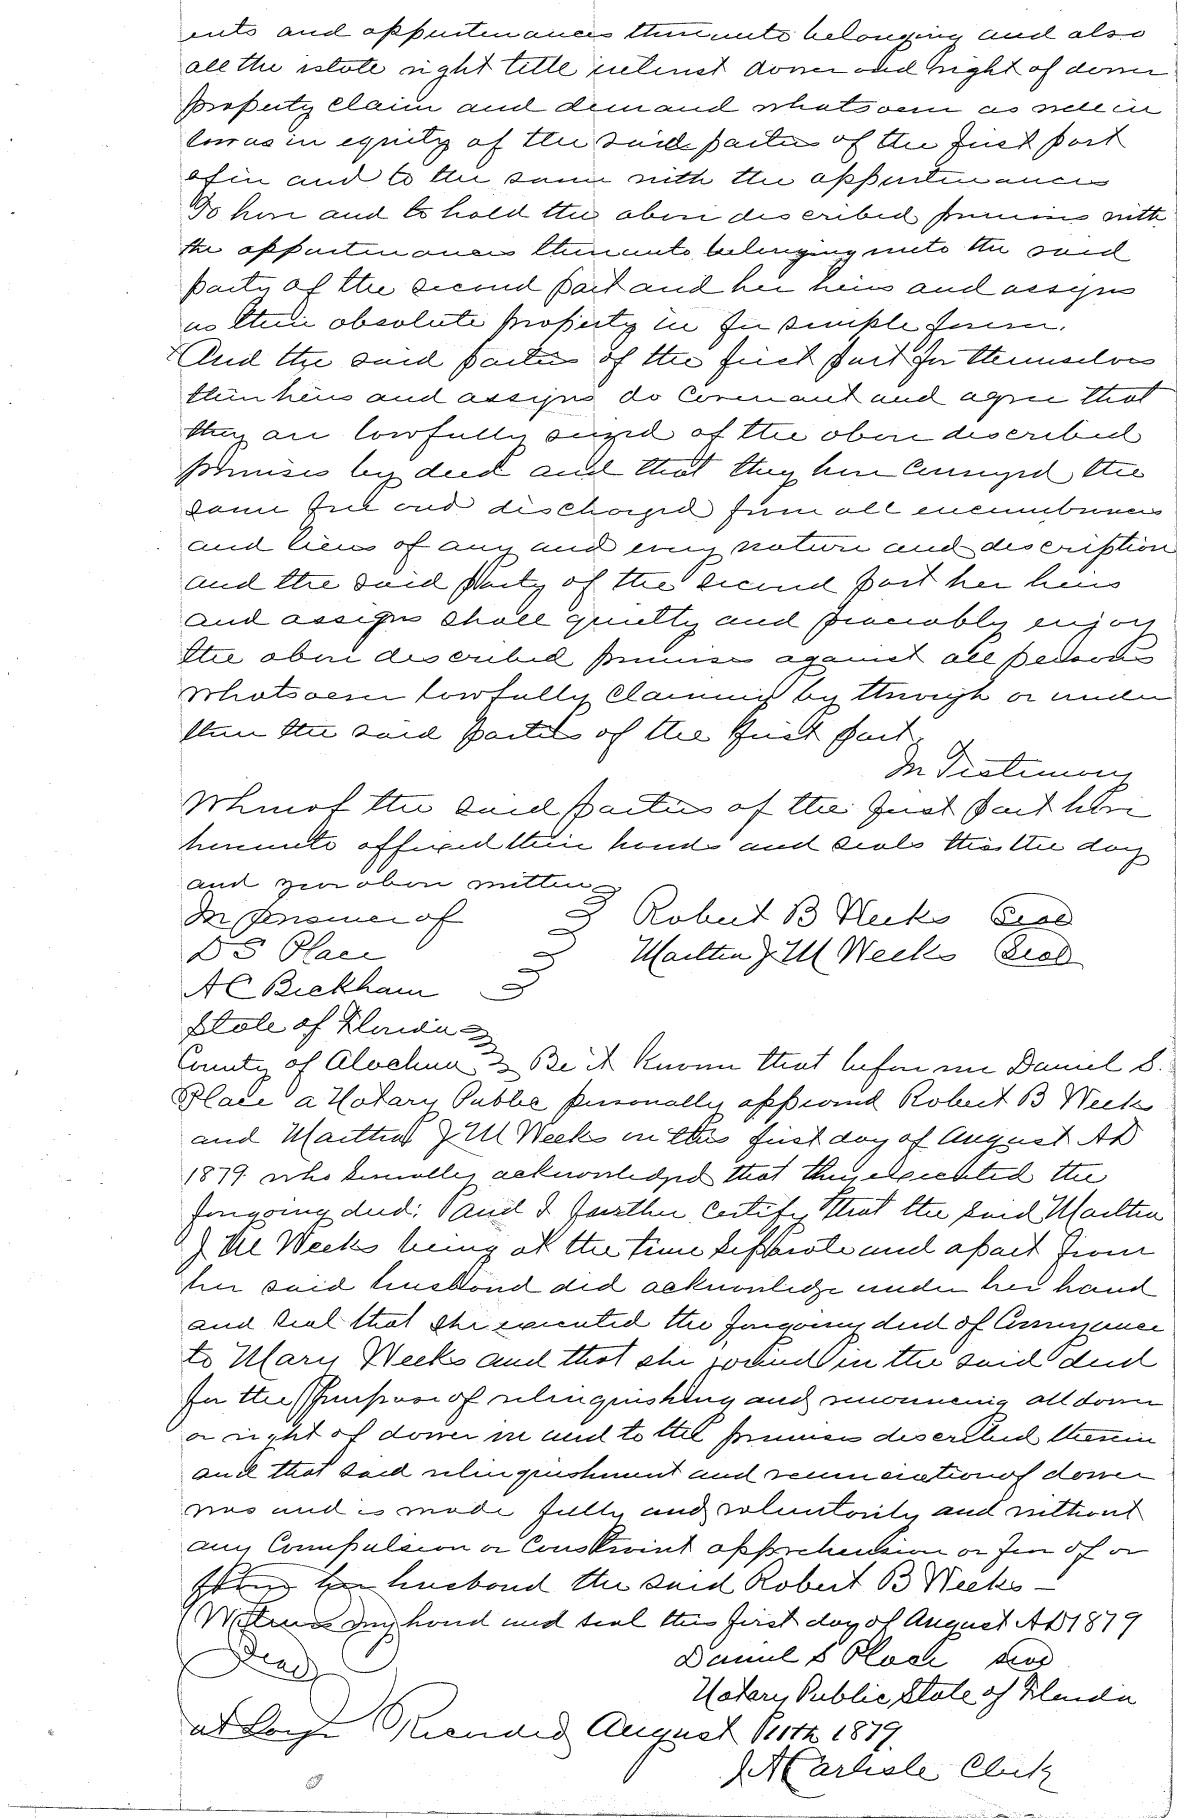 ents and appurtenances thereunto belonging and also
all the estate right title interest dower and right of dower
property claim and demand whatsoever as well in
law as in equity of the said parties of the first part
of in and to the same with the appurtenances
To have and to hold the above described premises with
the appurtenances thereunto belonging unto the said
party of the second part and her heirs and assigns
as their absolute property in fee simple forever.
And the said parties of the first part for themselves
their heirs and assigns do covenant and agree that
they are lawfully seized of the above described
premises by deed and that they have conveyed the
same free and discharged from all encumbrances
and liens of any and every nature and description
and the said Party of the second part her heirs
and assigns shall quietly and peaceably enjoy
the above described premises against all persons
whatsoever lawfully claiming by through or under
them the said parties of the first part.
In Testimony
Whereof the said parties of the first part have
hereunto affixed their hands and seals this the day
and year above written
In presence of Robert B Weeks Seal
D S Place Martha J. M Weeks Seal
A C Beckham
State of Florida
County of Alachua Be it Known that before me Daniel S.
Place a Notary Public personally appeared Robert B Weeks
and Martha J M Weeks on this first day of August AD
1879 who severally acknowledged that they executed the
foregoing deed; and I further certify that the said Martha
J M Weeks being at the time separate and apart from
her said husband did acknowledge under her hand
and seal that she executed the foregoing deed of Conveyance
to Mary Weeks and that she joined in the said deed
for the purpose of relinquishing and renouncing all dower
or right of dower in and to the premises described therein
and that said relinquishment and renunciation of dower
was and is made fully and voluntarily and without
any Compulsion or Constraint apprehension or fear of or
from her husband the said Robert B Weeks –
Witness my hand and seal this first day of August AD 1879
Seal Daniel S Place seal
Notary Public State of Florida
at Large Recorded August 11th 1879.
J A Carlisle Clerk